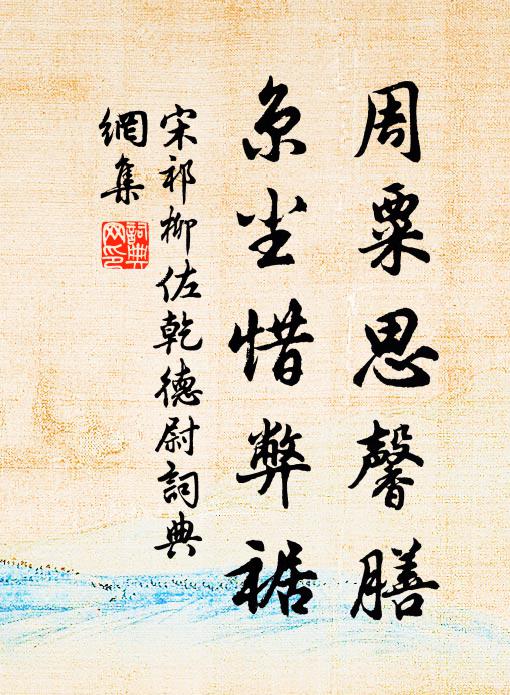 周粟思馨膳
京尘惜弊裾
宋祁柳佐乾德尉詞典
網集
詞典
网印